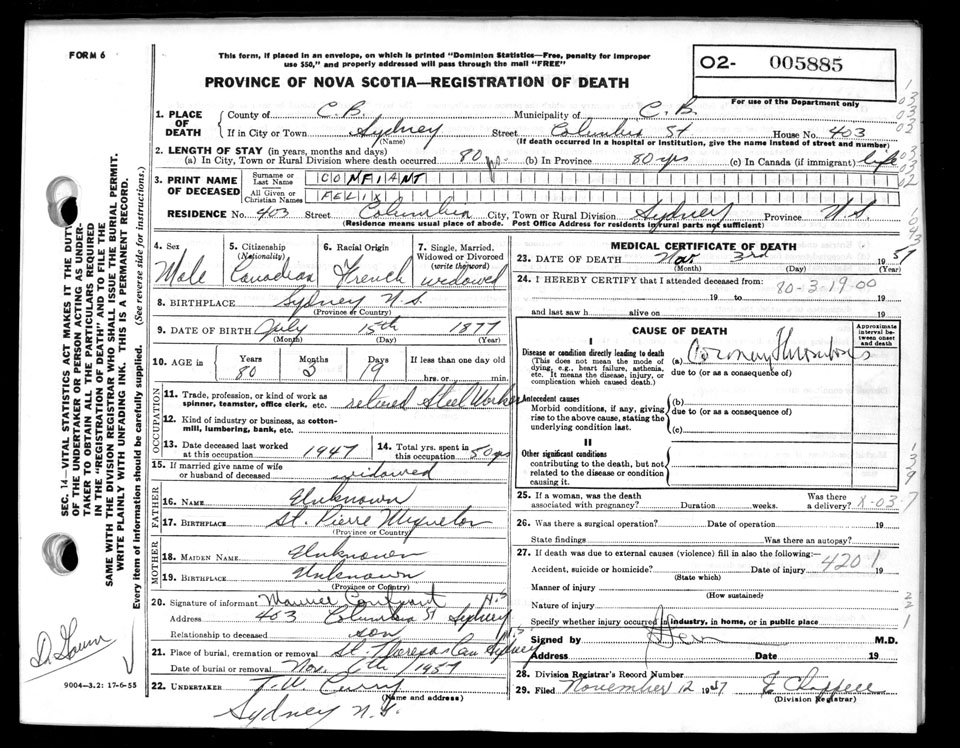 FORM 6
This form, if placed in an envelope, on which is printed "Dominion Statistics—Free, penalty for improper
use $50," and properly addressed will pass through the mail "FREE"
PROVINCE OF NOVA SCOTIA—REGISTRATION OF DEATH
O2- 005885
For use of the Department only
1. PLACE OF DEATH
County of C.B. Municipality of C.B.
If in City or Town Sydney Street Columbia St House No. 403
(Name) (If death occurred in a hospital or institution, give the name instead of street and number)
2. LENGTH OF STAY (in years, months and days)
(a) In City, Town or Rural Division where death occurred 80 yrs. (b) In Province 80 yrs (c) In Canada (if immigrant) life
3. PRINT NAME OF DECEASED
Surname or Last Name CONFIANT
All Given or Christian Names FELIX
RESIDENCE No. 403 Street Columbia City, Town or Rural Division Sydney Province N.S.
(Residence means usual place of abode. Post Office Address for residents in rural parts not sufficient)
4. Sex Male
5. Citizenship (Nationality) Canadian
6. Racial Origin French
7. Single, Married, Widowed or Divorced (write the word) widowed
8. BIRTHPLACE Sydney N.S.
(Province or Country)
9. DATE OF BIRTH July 15th 1877
(Month) (Day) (Year)
10. AGE in Years 80 Months 3 Days 19 If less than one day old
hrs. or min.
OCCUPATION
11. Trade, profession, or kind of work as
spinner, teamster, office clerk, etc. retired Steel Worker
12. Kind of industry or business, as cotton-
mill, lumbering, bank, etc.
13. Date deceased last worked
at this occupation 1947
14. Total yrs. spent in
this occupation 50 yrs
15. If married give name of wife
or husband of deceased widowed
FATHER
16. NAME Unknown
17. BIRTHPLACE St. Pierre Miquelon
(Province or Country)
MOTHER
18. MAIDEN NAME Unknown
19. BIRTHPLACE Unknown
(Province or Country)
20. Signature of informant Maurice Confiant
Address 403 Columbia St Sydney N.S.
Relationship to deceased son
21. Place of burial, cremation or removal St. Theresas Cem Sydney N.S.
Date of burial or removal Nov. 6th 1957
22. UNDERTAKER T.W. Curry
(Name and address)
Sydney N.S.
MEDICAL CERTIFICATE OF DEATH
23. DATE OF DEATH Nov 3rd 1957
(Month) (Day) (Year)
24. I HEREBY CERTIFY that I attended deceased from
80-3-19-00
19 to 19
and last saw h alive on 19
CAUSE OF DEATH
Approximate interval between onset and death
I
Disease or condition directly leading to death
(This does not mean the mode of
dying, e.g., heart failure, asthenia,
etc. It means the disease, injury, or
complication which caused death.)
(a) Coronary Thrombosis
due to (or as a consequence of)
Antecedent causes
Morbid conditions, if any, giving
rise to the above cause, stating the
underlying condition last.
(b)
due to (or as a consequence of)
(c)
II
Other significant conditions
contributing to the death, but not
related to the disease or condition
causing it.
25. If a woman, was the death
associated with pregnancy? Duration weeks. Was there a delivery?
26. Was there a surgical operation? Date of operation 19
State findings Was there an autopsy?
27. If death was due to external causes (violence) fill in also the following:—
4201
Accident, suicide or homicide? Date of injury 19
(State which)
Manner of injury
(How sustained)
Nature of injury
Specify whether injury occurred in industry, in home, or in public place
Signed by M.D.
Address Date 19
28. Division Registrar's Record Number
29. Filed November 12 1957
(Division Registrar)
SEC. 14—VITAL STATISTICS ACT MAKES IT THE DUTY
OF THE UNDERTAKER OR PERSON ACTING AS UNDER-
TAKER TO OBTAIN ALL THE PARTICULARS REQUIRED
IN THE "REGISTRATION OF DEATH" AND TO FILE THE
SAME WITH THE DIVISION REGISTRAR WHO SHALL ISSUE THE BURIAL PERMIT.
WRITE PLAINLY WITH UNFADING INK. THIS IS A PERMANENT RECORD.
Every item of information should be carefully supplied. (See reverse side for instructions.)
9004—3.2: 17-6-55